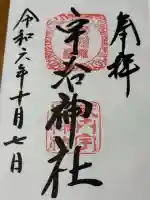 奉拝
宇治神社
令和六年十月七日